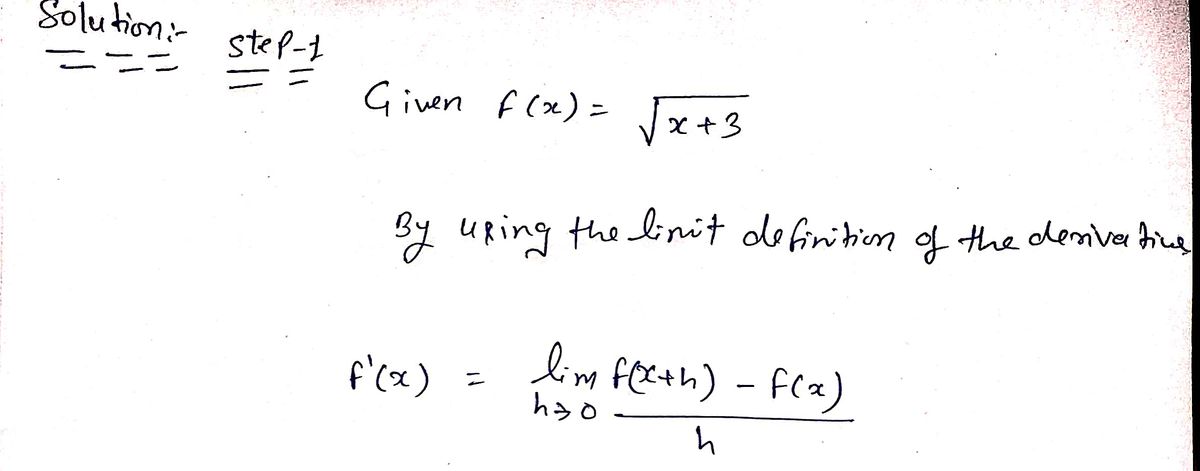 Solution:-
step-1
Given f(x) = √x+3
By using the limit definition of the derivative
f'(x) = lim f(x+h) - f(x)
h→0
h